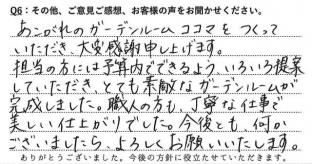 Q6：その他、ご意見ご感想、お客様の声をお聞かせください。
あこがれのガーデンルーム ココマ をつくって
いただき、大変感謝申し上げます。
担当の方には予算内でできるよう、いろいろ提案
していただき、とても素敵なガーデンルームが
完成しました。職人の方も、丁寧な仕事で
美しい仕上がりでした。今後とも、何か
ございましたら、よろしくお願いいたします。
ありがとうございました。今後の方針に役立たせていただきます。